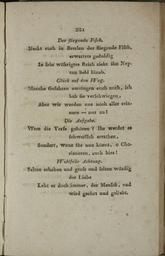 Der fliegende Fisch.
Nackt euch in Berylen der fliegende Fisch,
erwarten geduldig
In sein wässrigtes Reich sieht ihn Nep-
tun bald hinab.
Glück auf den Weg.
Manche Gefahren umringen euch noch, ich
hab sie verschwiegen,
Aber wir werden uns noch aller erin-
nern — nur zu!
Die Aufgabe.
Wem die Verse gehören? Ihr werdet es
schwerlich errathen,
Sondert, wenn ihr nun könnt, o Cho-
rizonten, auch hier!
Wohlfeile Achtung.
Selten erhaben und groß und selten würdig
der Liebe
Lebt er doch immer, der Mensch, und
wird geehrt und geliebt.